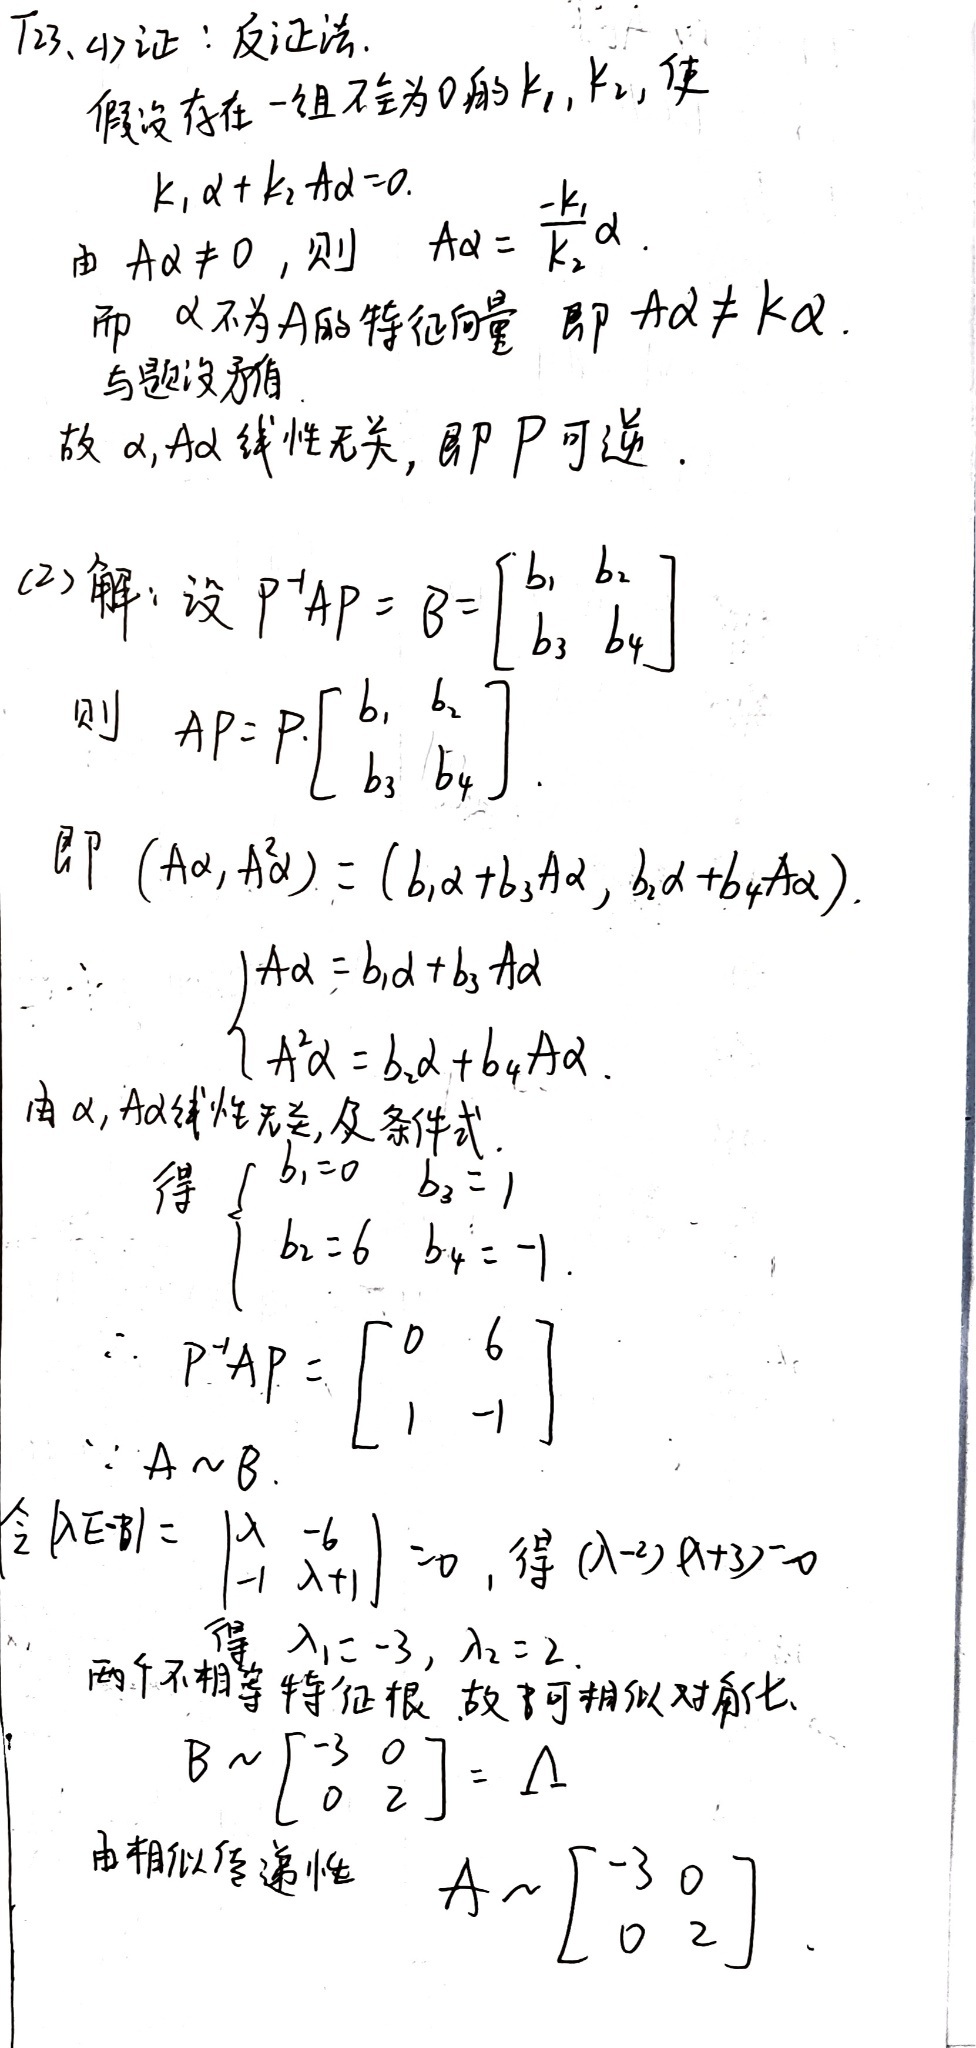 T23、(1)证：反证法.
假设存在一组不全为0的k₁, k₂, 使
k₁α+k₂Aα=0.
由 Aα≠0, 则 Aα = \frac{-k₁}{k₂}α.
而 α不为A的特征向量 即 Aα≠kα.
与题设矛盾.
故 α, Aα 线性无关, 即P可逆.
(2) 解: 设 P⁻¹AP = B = [b₁ b₂
b₃ b₄]
则 AP = P·[b₁ b₂
b₃ b₄].
即 (Aα, A²α) = (b₁α+b₃Aα, b₂α+b₄Aα).
∴ {Aα = b₁α+b₃Aα
A²α = b₂α+b₄Aα.
由α, Aα线性无关, 及条件式.
得 {b₁=0 b₃=1
b₂=6 b₄=-1.
∴ P⁻¹AP = [0 6
1 -1]
∵ A~B.
令|λE-B| = |λ -6
-1 λ+1| =0, 得 (λ-2)(λ+3)=0
得 λ₁=-3, λ₂=2.
两个不相等特征根 故B可相似对角化.
B ~ [-3 0
0 2] = Λ
由相似传递性 A ~ [-3 0
0 2].